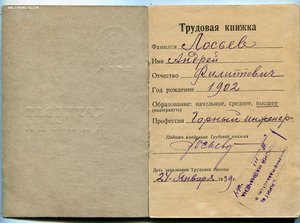 Трудовая книжка
Фамилия Лосьев
Имя Андрей
Отчество Филиппович
Год рождения 1902
Образование: начальное, среднее, высшее
(подчеркнуть)
Профессия Горный инженер
Подпись владельца Трудовой книжки
Лосьев
Дата заполнения Трудовой книжки
21 января 1939 г.